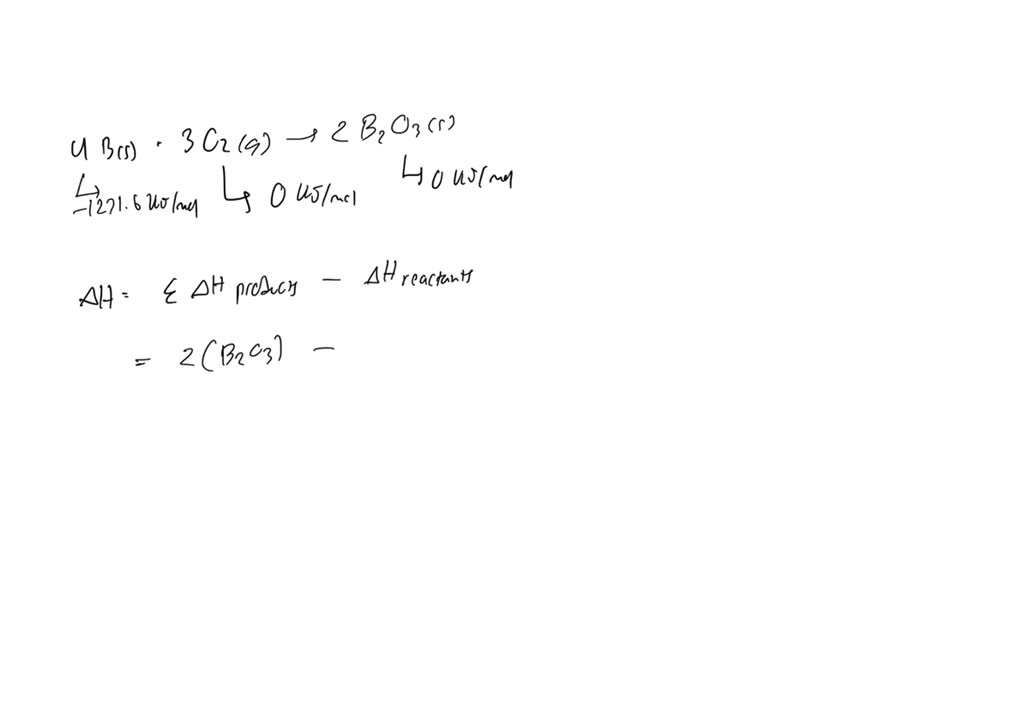 4 B(s) · 3 O2 (g) → 2 B2O3 (s)
↳ -1271.6 kJ/mol ↳ 0 kJ/mol ↳ 0 kJ/mol
ΔH = Σ ΔH products - ΔH reactants
= 2(B2O3) -